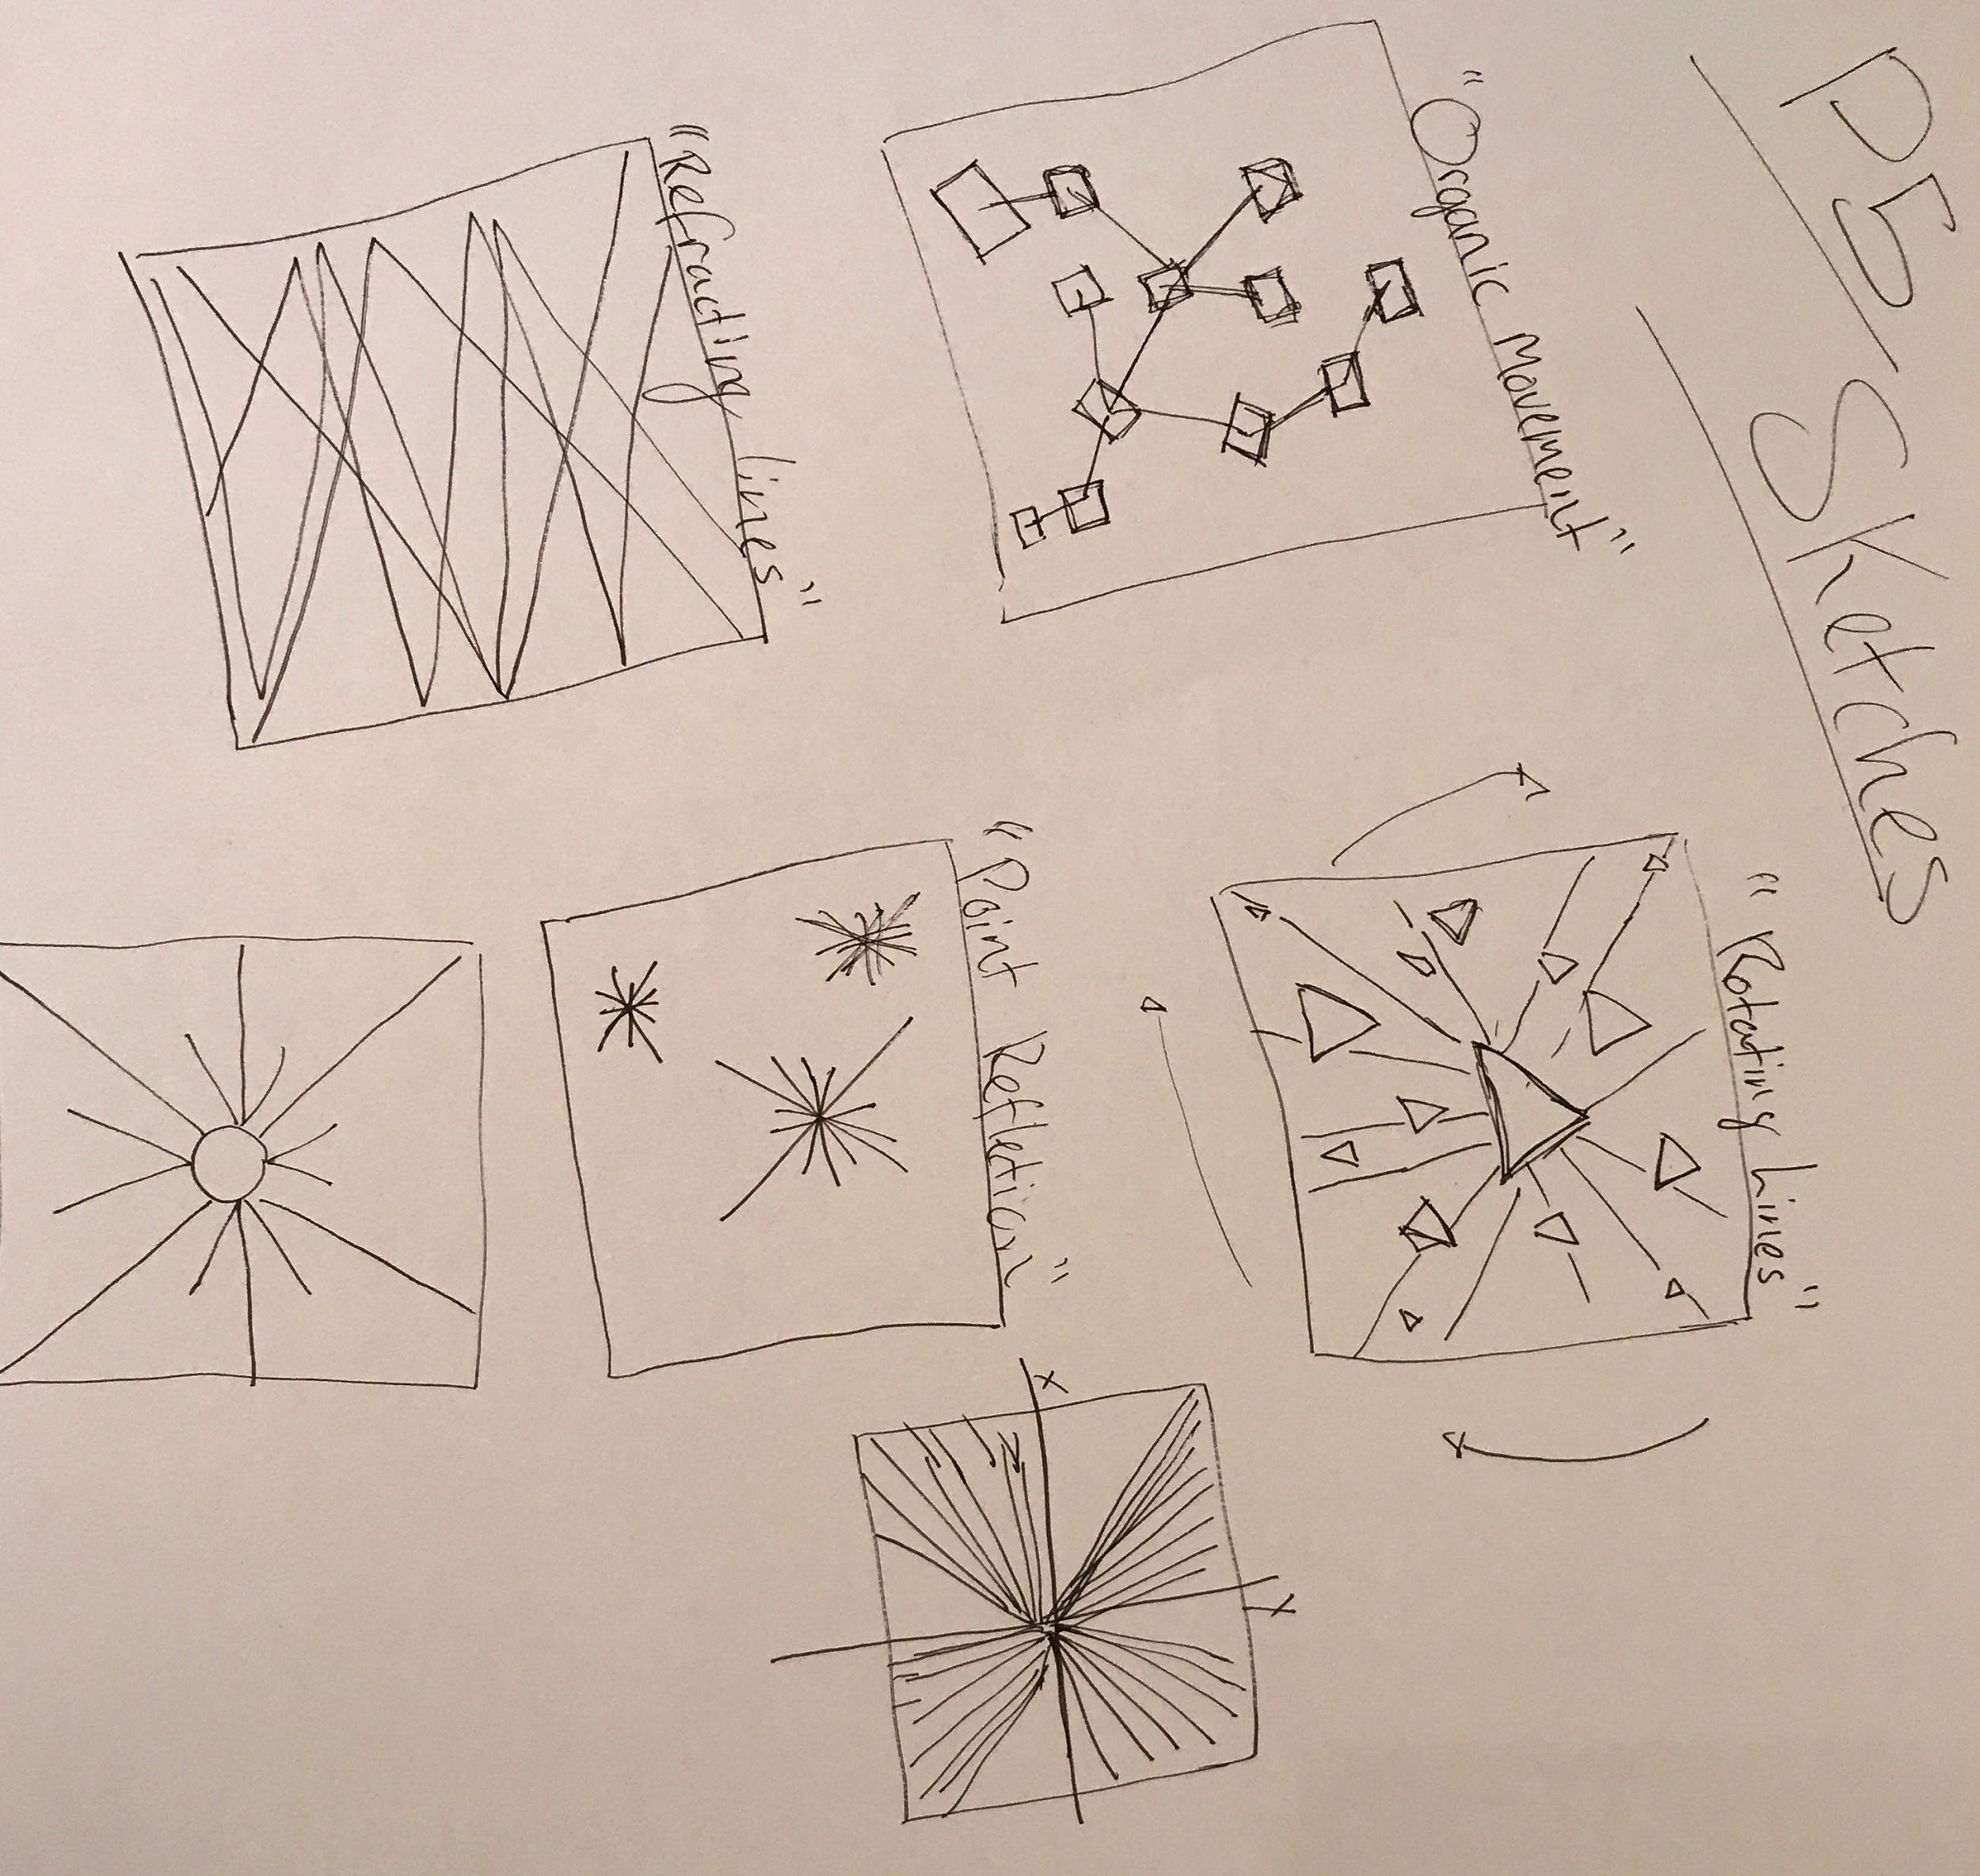 P5 Sketches
"Organic Movement"
"Refracting lines"
"Rotating Lines"
"Point Reflection"
X
Y